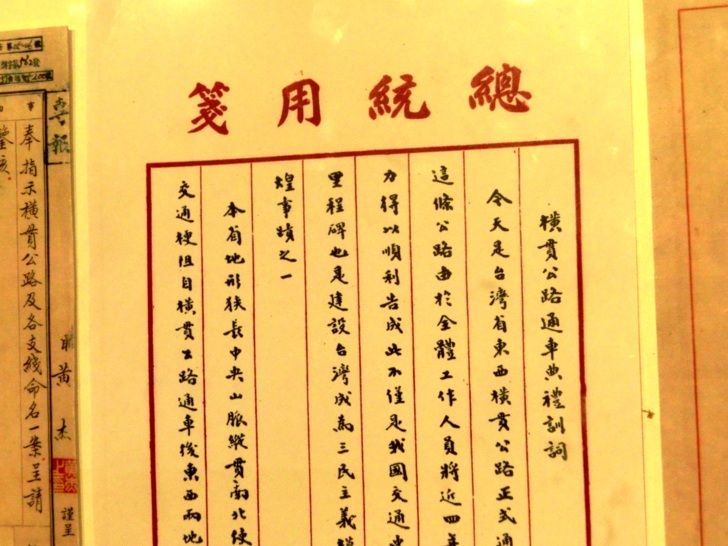 總統用箋
橫貫公路通車典禮訓詞
今天是台灣省東西橫貫公路正式通
這條公路由於全體工作人員將近四年
力得以順利告成此不僅是我國交通史
里程碑也是建設台灣成為三民主義模
煌事蹟之一
本省地形狹長中央山脈縱貫南北使
交通梗阻自橫貫公路通車後東西兩地
專報
職黃杰
謹呈
奉指示橫貫公路及各支綫命名一案呈請
鑒核